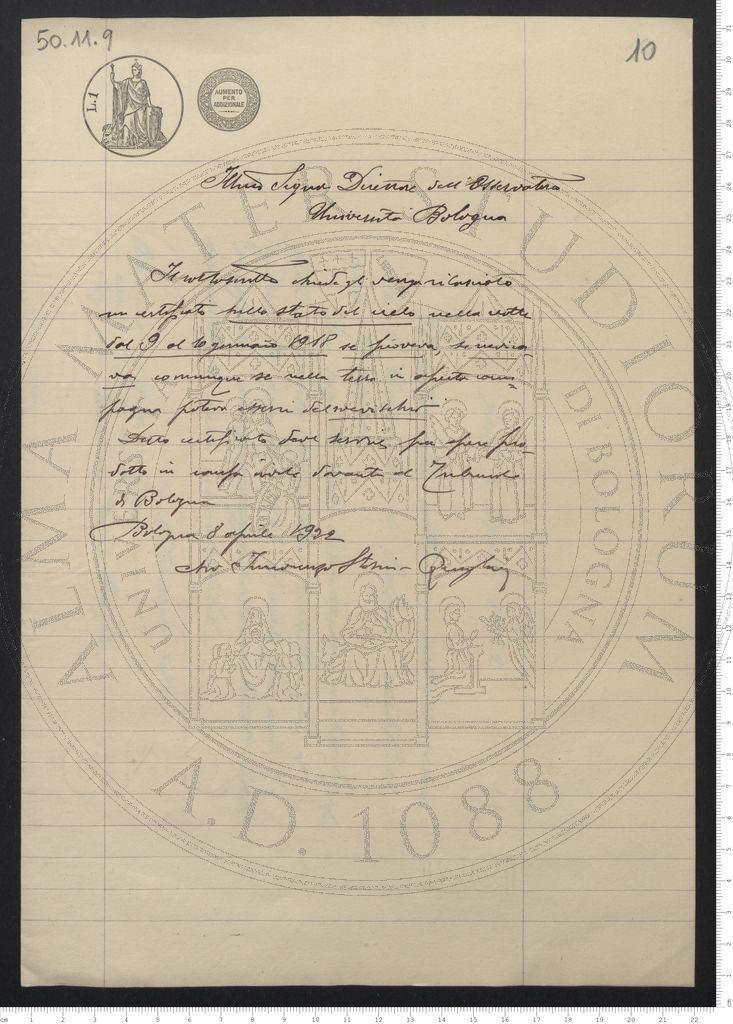 50.11.9
10
L.1
AUMENTO
PER
ADDIZIONALE
Illmo Signor Direttore dell'Osservatorio
Università Bologna
Il sottoscritto chiede gli venga rilasciato
un certificato sullo stato del cielo nella notte
dal 9 al 10 gennaio 1918 se pioveva, se nevica-
va comunque se nella terra in aperta cam-
pagna poteva esservi del nevischio
Detto certificato deve servire per essere pro-
dotto in causa civile davanti al Tribunale
di Bologna
Bologna 8 aprile 1922
Avv
ALMA MATER STUDIORUM
UNIVERSITÀ DI BOLOGNA
A.D. 1088